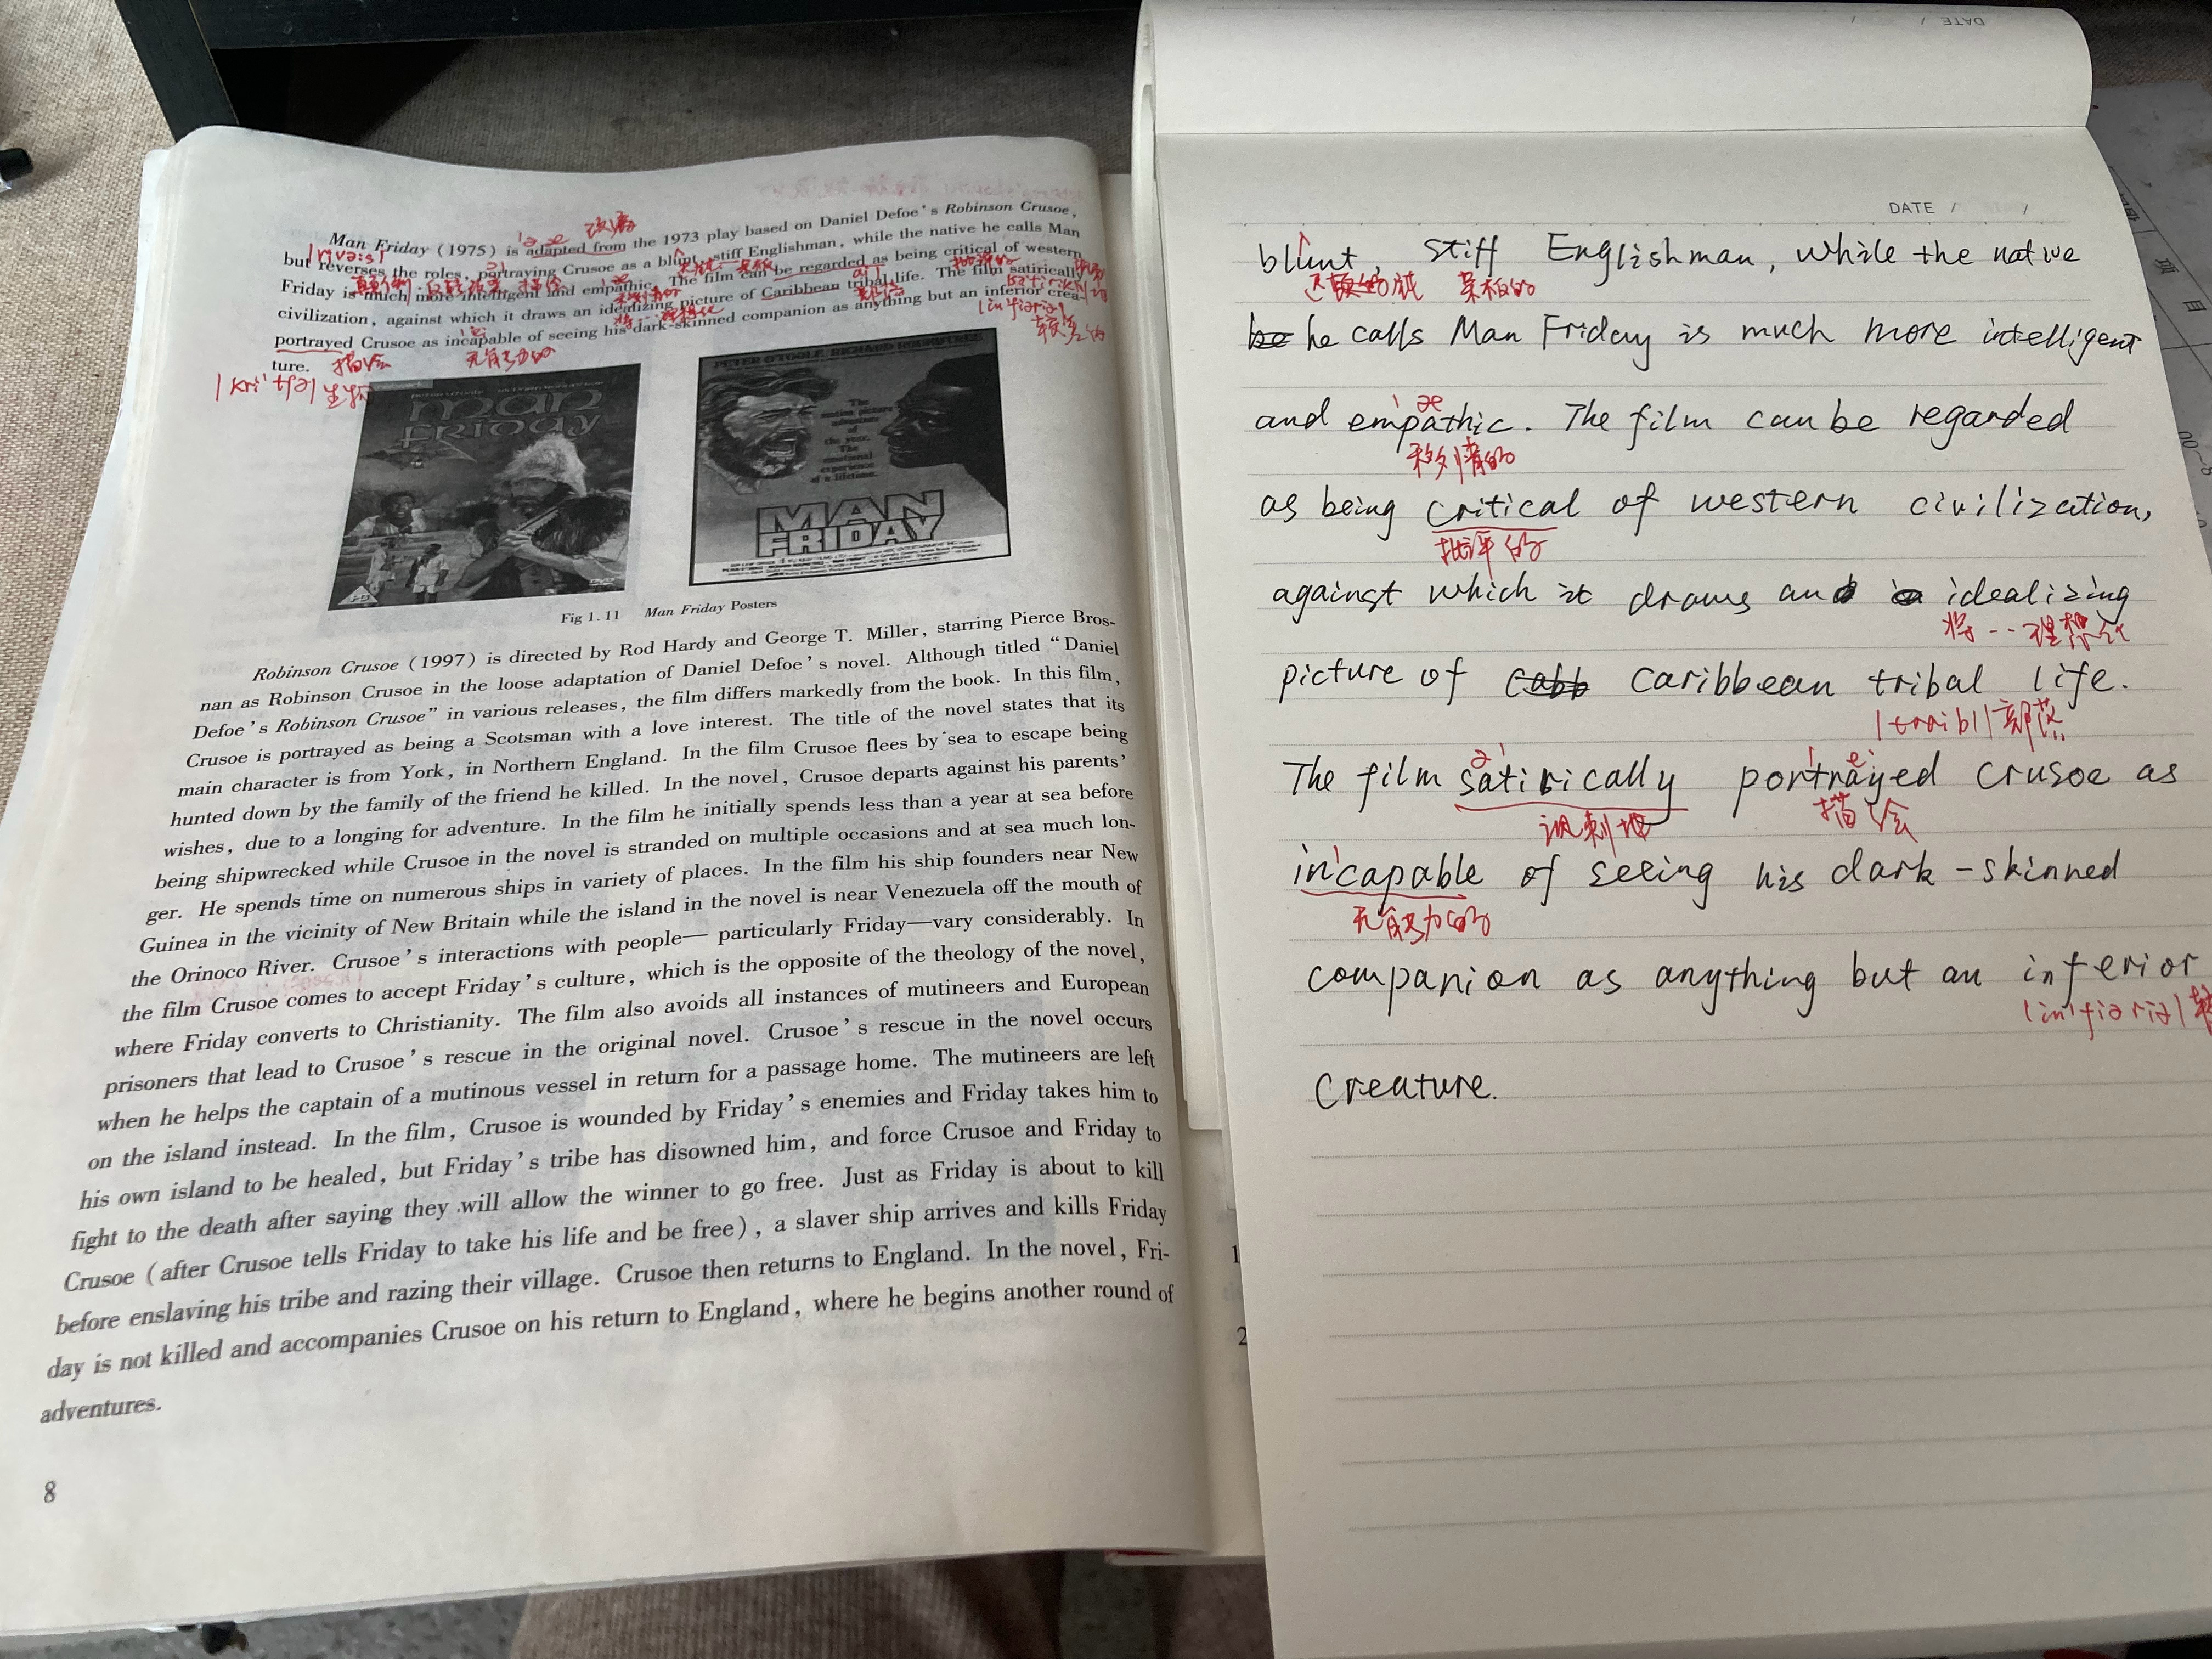 改编
Man Friday (1975) is adapted from the 1973 play based on Daniel Defoe's Robinson Crusoe,
but reverses the roles, portraying Crusoe as a blunt, stiff Englishman, while the native he calls Man
Friday is much more intelligent and empathic. The film can be regarded as being critical of western
civilization, against which it draws an idealizing picture of Caribbean tribal life. The film satirically
portrayed Crusoe as incapable of seeing his dark-skinned companion as anything but an inferior crea-
ture.
描绘
无能力的
生物
MAN
FRIDAY
DVD
PETER O'TOOLE, RICHARD ROUNDTREE
The
motion picture
adventure
of
the year.
The
emotional
experience
of a lifetime.
MAN
FRIDAY
Fig 1.11 Man Friday Posters
Robinson Crusoe (1997) is directed by Rod Hardy and George T. Miller, starring Pierce Bros-
nan as Robinson Crusoe in the loose adaptation of Daniel Defoe's novel. Although titled “Daniel
Defoe's Robinson Crusoe” in various releases, the film differs markedly from the book. In this film,
Crusoe is portrayed as being a Scotsman with a love interest. The title of the novel states that its
main character is from York, in Northern England. In the film Crusoe flees by sea to escape being
hunted down by the family of the friend he killed. In the novel, Crusoe departs against his parents'
wishes, due to a longing for adventure. In the film he initially spends less than a year at sea before
being shipwrecked while Crusoe in the novel is stranded on multiple occasions and at sea much lon-
ger. He spends time on numerous ships in variety of places. In the film his ship founders near New
Guinea in the vicinity of New Britain while the island in the novel is near Venezuela off the mouth of
the Orinoco River. Crusoe's interactions with people— particularly Friday—vary considerably. In
the film Crusoe comes to accept Friday's culture, which is the opposite of the theology of the novel,
where Friday converts to Christianity. The film also avoids all instances of mutineers and European
prisoners that lead to Crusoe's rescue in the original novel. Crusoe's rescue in the novel occurs
when he helps the captain of a mutinous vessel in return for a passage home. The mutineers are left
on the island instead. In the film, Crusoe is wounded by Friday's enemies and Friday takes him to
his own island to be healed, but Friday's tribe has disowned him, and force Crusoe and Friday to
fight to the death after saying they will allow the winner to go free. Just as Friday is about to kill
Crusoe (after Crusoe tells Friday to take his life and be free), a slaver ship arrives and kills Friday
before enslaving his tribe and razing their village. Crusoe then returns to England. In the novel, Fri-
day is not killed and accompanies Crusoe on his return to England, where he begins another round of
adventures.
8
DATE / /
DATE / /
blunt, stiff Englishman, while the native
迟钝 呆板的
he calls Man Friday is much more intelligent
and empathic. The film can be regarded
移情的
as being critical of western civilization,
批评的
against which it draws an idealizing
将...理想化
picture of Caribbean tribal life.
|traibl| 部落
The film satirically portrayed Crusoe as
讽刺地 描绘
incapable of seeing his dark-skinned
无能力的
companion as anything but an inferior
|in'fiəriə|
creature.